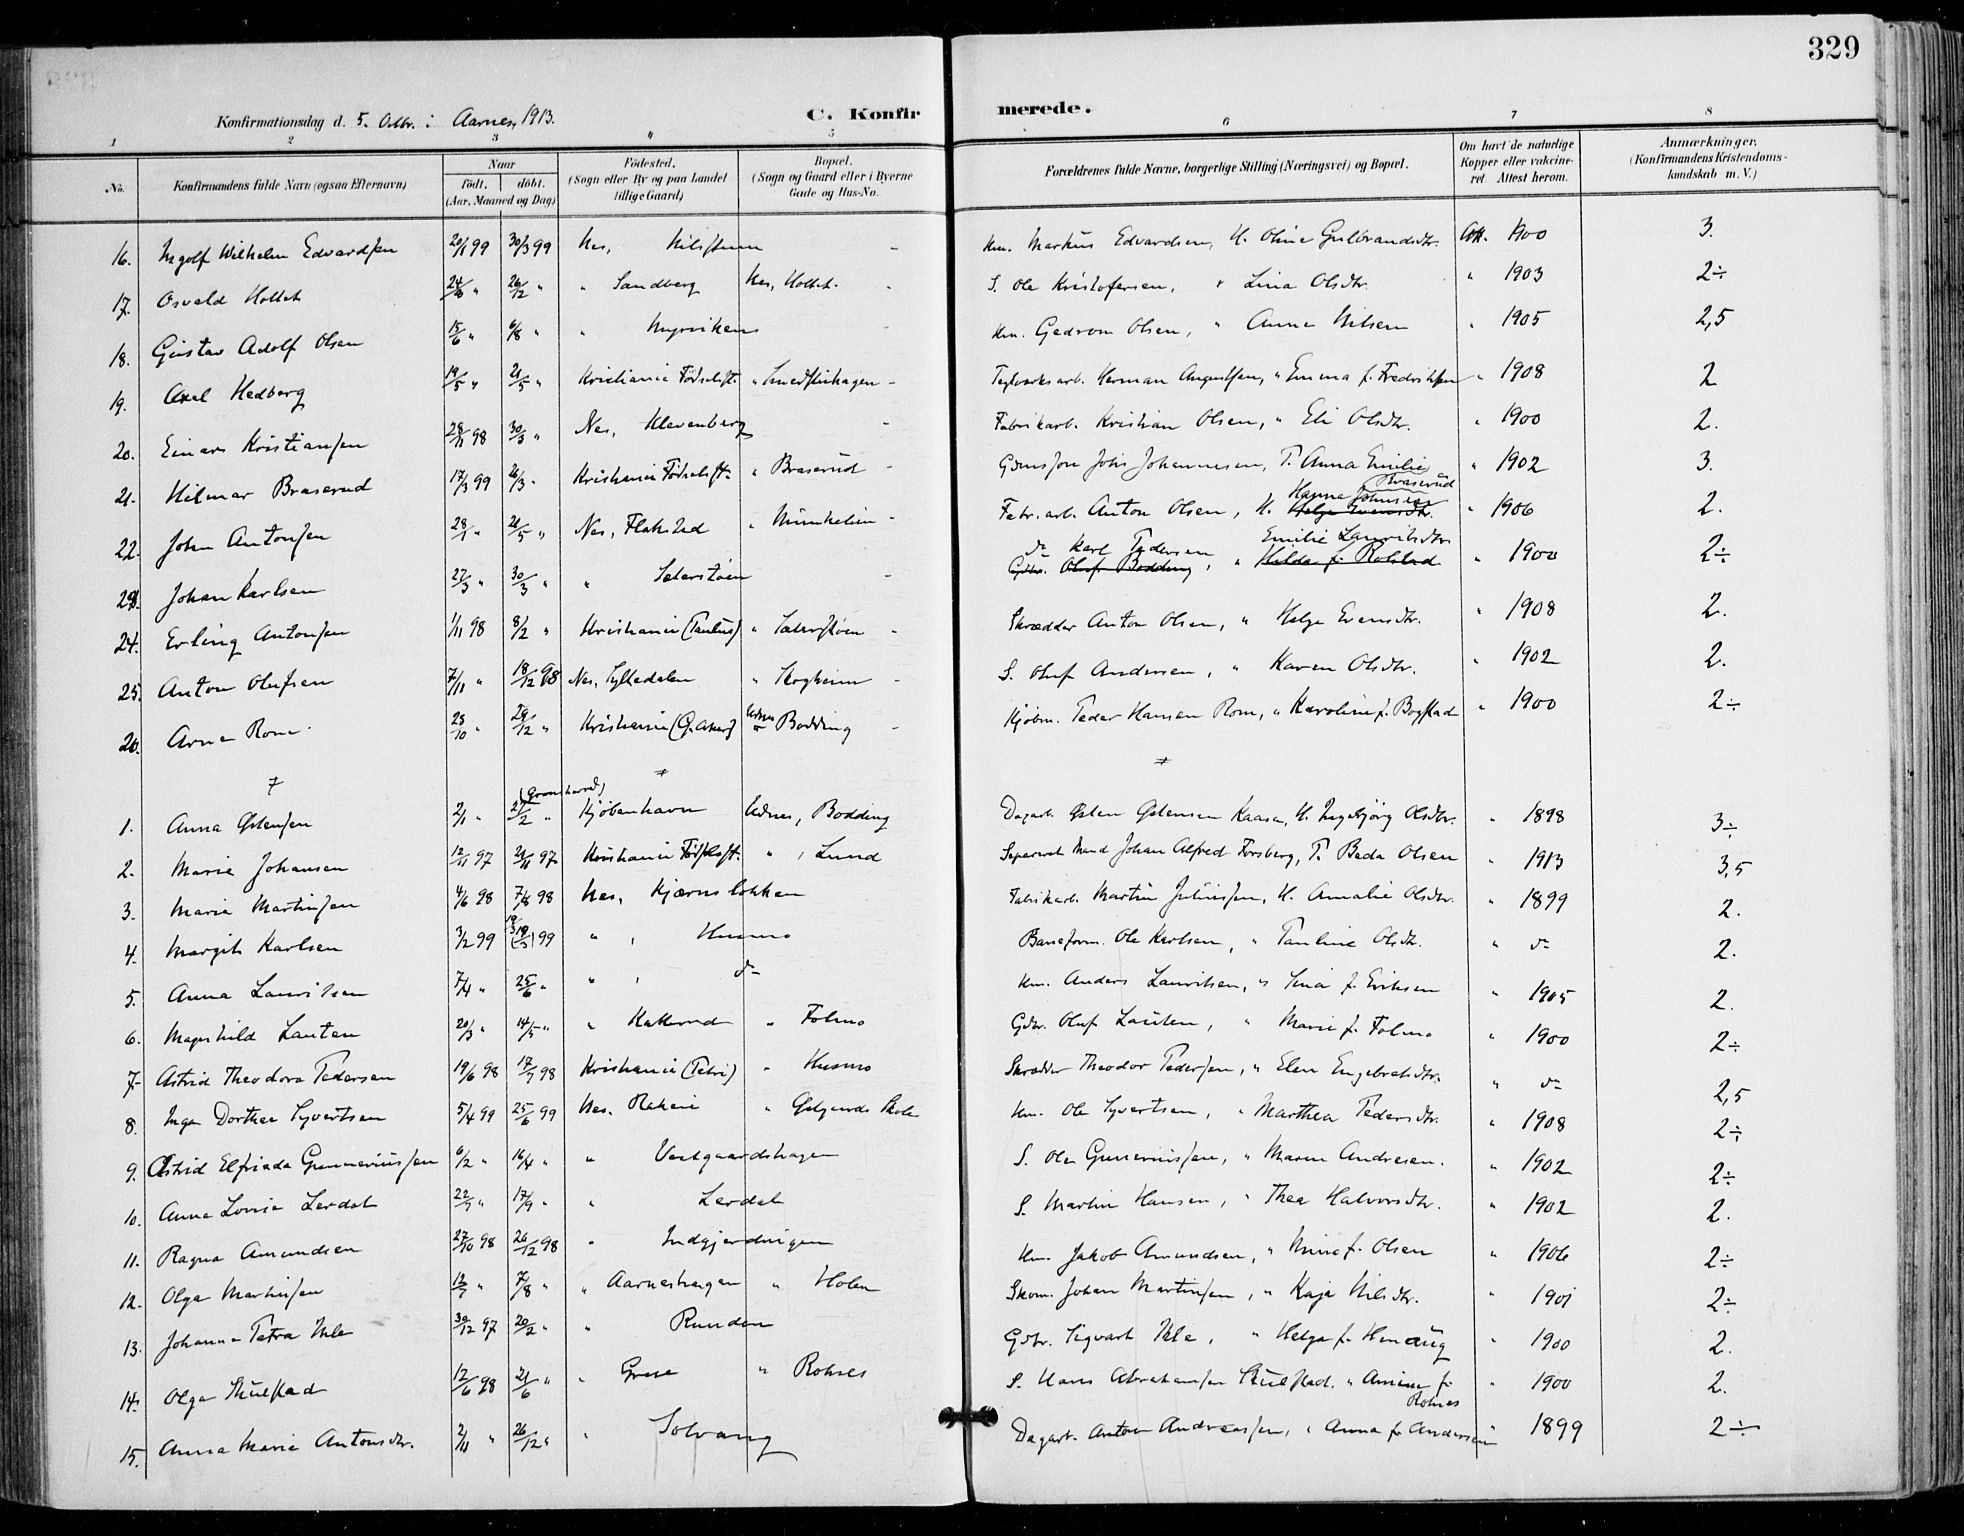 329
Konfirmationsdag d. 5. Octbr. i Aarnes, 1913.
C. Konfirmerede.
1 2 3 " 5 6 7 8
No. Konfirmandens fulde Navn (ogsaa Efternavn) Naar født. døbt. (Aar, Maaned og Dag) Fødested. (Sogn eller By og paa Landet tillige Gaard) Bopæl. (Sogn og Gaard eller i Byerne Gade og Hus-No. Forældrenes fulde Navne, borgerlige Stilling (Næringsvei) og Bopæl. Om havt de naturlige Kopper eller vakcineret. Attest herom. Anmærkninger. (Konfirmandens Kristendomskundskab m. V.)
16. Ingolf Wilhelm Edvardsen 20/1 99 30/3 99 Nes, Km. Markus Edvardsen, H. Oline Gulbrandsdtr. Att. 1900 3.
17. Osvald Holtet " 26/12 " " Sandberg Nes, Holtet. S. Ole Kristofersen, " Lina Olsdtr. " 1903 2÷
18. Gustav Adolf Olsen 15/6 " 6/8 " " Myrviken Km. Olsen, " Anna Nilsen " 1905 2,5
19. Axel Hedberg 19/5 " 21/5 " Kristiania Fødselsst. " Teglværksarb. Herman Augustsen, " Emma f. Fredriksen " 1908 2
20. Einar Kristiansen 28/11 98 30/3 " Nes, Klevenberg Fabrikarb. Kristian Olsen, " Eli Olsdtr. " 1900 2.
21. Hilmar Braserud 17/3 99 26/3 " Kristiania Fødselsst. " Braserud Johs Johannesen, P. Anna Emilie Braserud " 1902 3.
22. John Antonsen 28/1 " 21/5 " Nes, Flakstad " Fabr. arb. Anton Olsen, H. Hanna Johnsen Helga Evensdtr. " 1906 2.
23. Johan Karlsen 27/3 " 30/3 " " Sæterstøen do Karl Pedersen Emilie Lauritsdtr. Gbr. Oluf Bodding, " Hilda f. Rolstad " 1900 2÷
24. Erling Antonsen 1/11 98 8/2 " Kristiania (Paulus) " Sæterstøen Skrædder Anton Olsen, " Helga Evensdtr. " 1908 2.
25. Anton Olufsen 7/11 " 18/12 98 Nes, Sylledalen " Skogheim S. Oluf Andersen, " Karen Olsdtr. " 1902 2.
26. Arne Rom 25/10 " 29/12 " Kristiania (G. Aker) Udnes Bodding Kjøbm. Peder Hansen Rom, " Karoline f. Bogstad " 1900 2÷
1. Anna Østensen 2/1 " 27/2 " Kjøbenhavn Udnes, Bodding Dagarb. Østen Østensen Kaasa, H. Ingebjørg Olsdtr. " 1898 3÷
2. Marie Johansen 12/11 97 21/11 97 Kristiania Fødselsst. " , Lund Separeret Mand Johan Alfred Forsberg, P. Beda Olsen " 1913 3,5
3. Marie Martinsen 4/6 98 7/8 98 Nes, Kjærnsløkken Fabrikarb. Martin Juliussen, H. Amalie Olsdtr. " 1899 2.
4. Margit Karlsen 3/2 99 99 " , Husmo Baneform. Ole Karlsen, " Pauline Olsdtr. " do 2.
5. Anna Lauritsen 7/4 " 25/6 " " , do Km. Anders Lauritsen, " Lina f. Eriksen " 1905 2.
6. Magnhild Lauten 20/3 " 14/5 " " Kakerud " Folmo Gbr. Oluf Lauten, " Marie f. Folmo " 1900 2÷
7. Astrid Theodora Pedersen 19/6 98 17/7 98 Kristiania (Petri) " Husmo Skrædder Theodor Pedersen, " Elen Engebretsdtr. " do 2,5
8. Inga Dorthea Syvertsen 5/4 99 25/6 99 Nes, Rakeie " Østgaards Skole Km. Ole Syvertsen, " Marthea Pedersdtr. " 1908 2÷
9. Astrid Elfrieda Gunneriussen 6/2 " 16/4 " " Vestgaardshagen S. Ole Gunneriussen, " Maren Andresen. " 1902 2÷
10. Anna Lovise Lerdal 22/7 " 17/9 " " Lerdal S. Martin Hansen, " Thea Halvorsdtr. " 1902 2.
11. Ragna Amundsen 27/10 98 26/12 98 " Indgjerdingen Km. Jakob Amundsen, " Mina f. Olsen " 1906 2÷
12. Olga Martinsen " 7/8 " " Aarneshagen " Holen Skom. Johan Martinsen, " Kaja Nilsdtr. " 1901 2÷
13. Johanna Petra Ihle 30/12 97 20/2 " " Runden Gbr. Sigvart Ihle, " Helga f. Henaug " 1900 2.
14. Olga Skulstad 12/6 98 21/6 " " " Rohnes S. Hans Abrahamsen Skulstad. " f. Rohnes " 1900 2.
15. Anna Marie Antonsdtr. 2/11 " 26/12 " " Solvang Dagarb. Anton Andreassen, " Anna f. Andersen " 1899 2÷